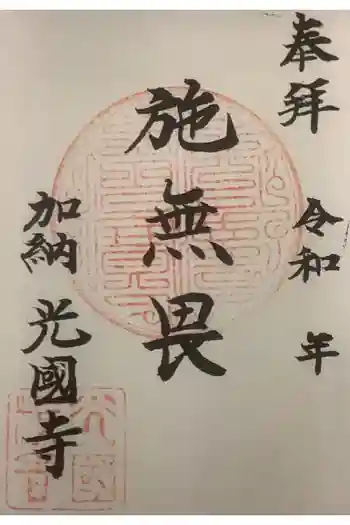 奉拝
令和 年
施無畏
加納 光國寺